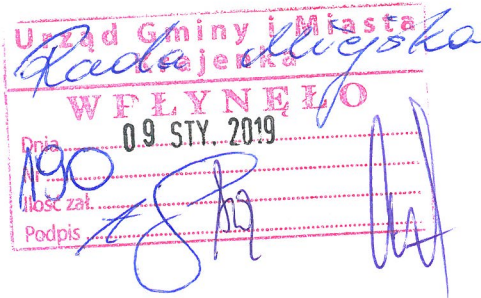 Urząd Gminy i Miasta
Rada Miejska
Krajenka
WPŁYNĘŁO
Dnia 09 STY. 2019
Nr 190
Ilość zał.
Podpis